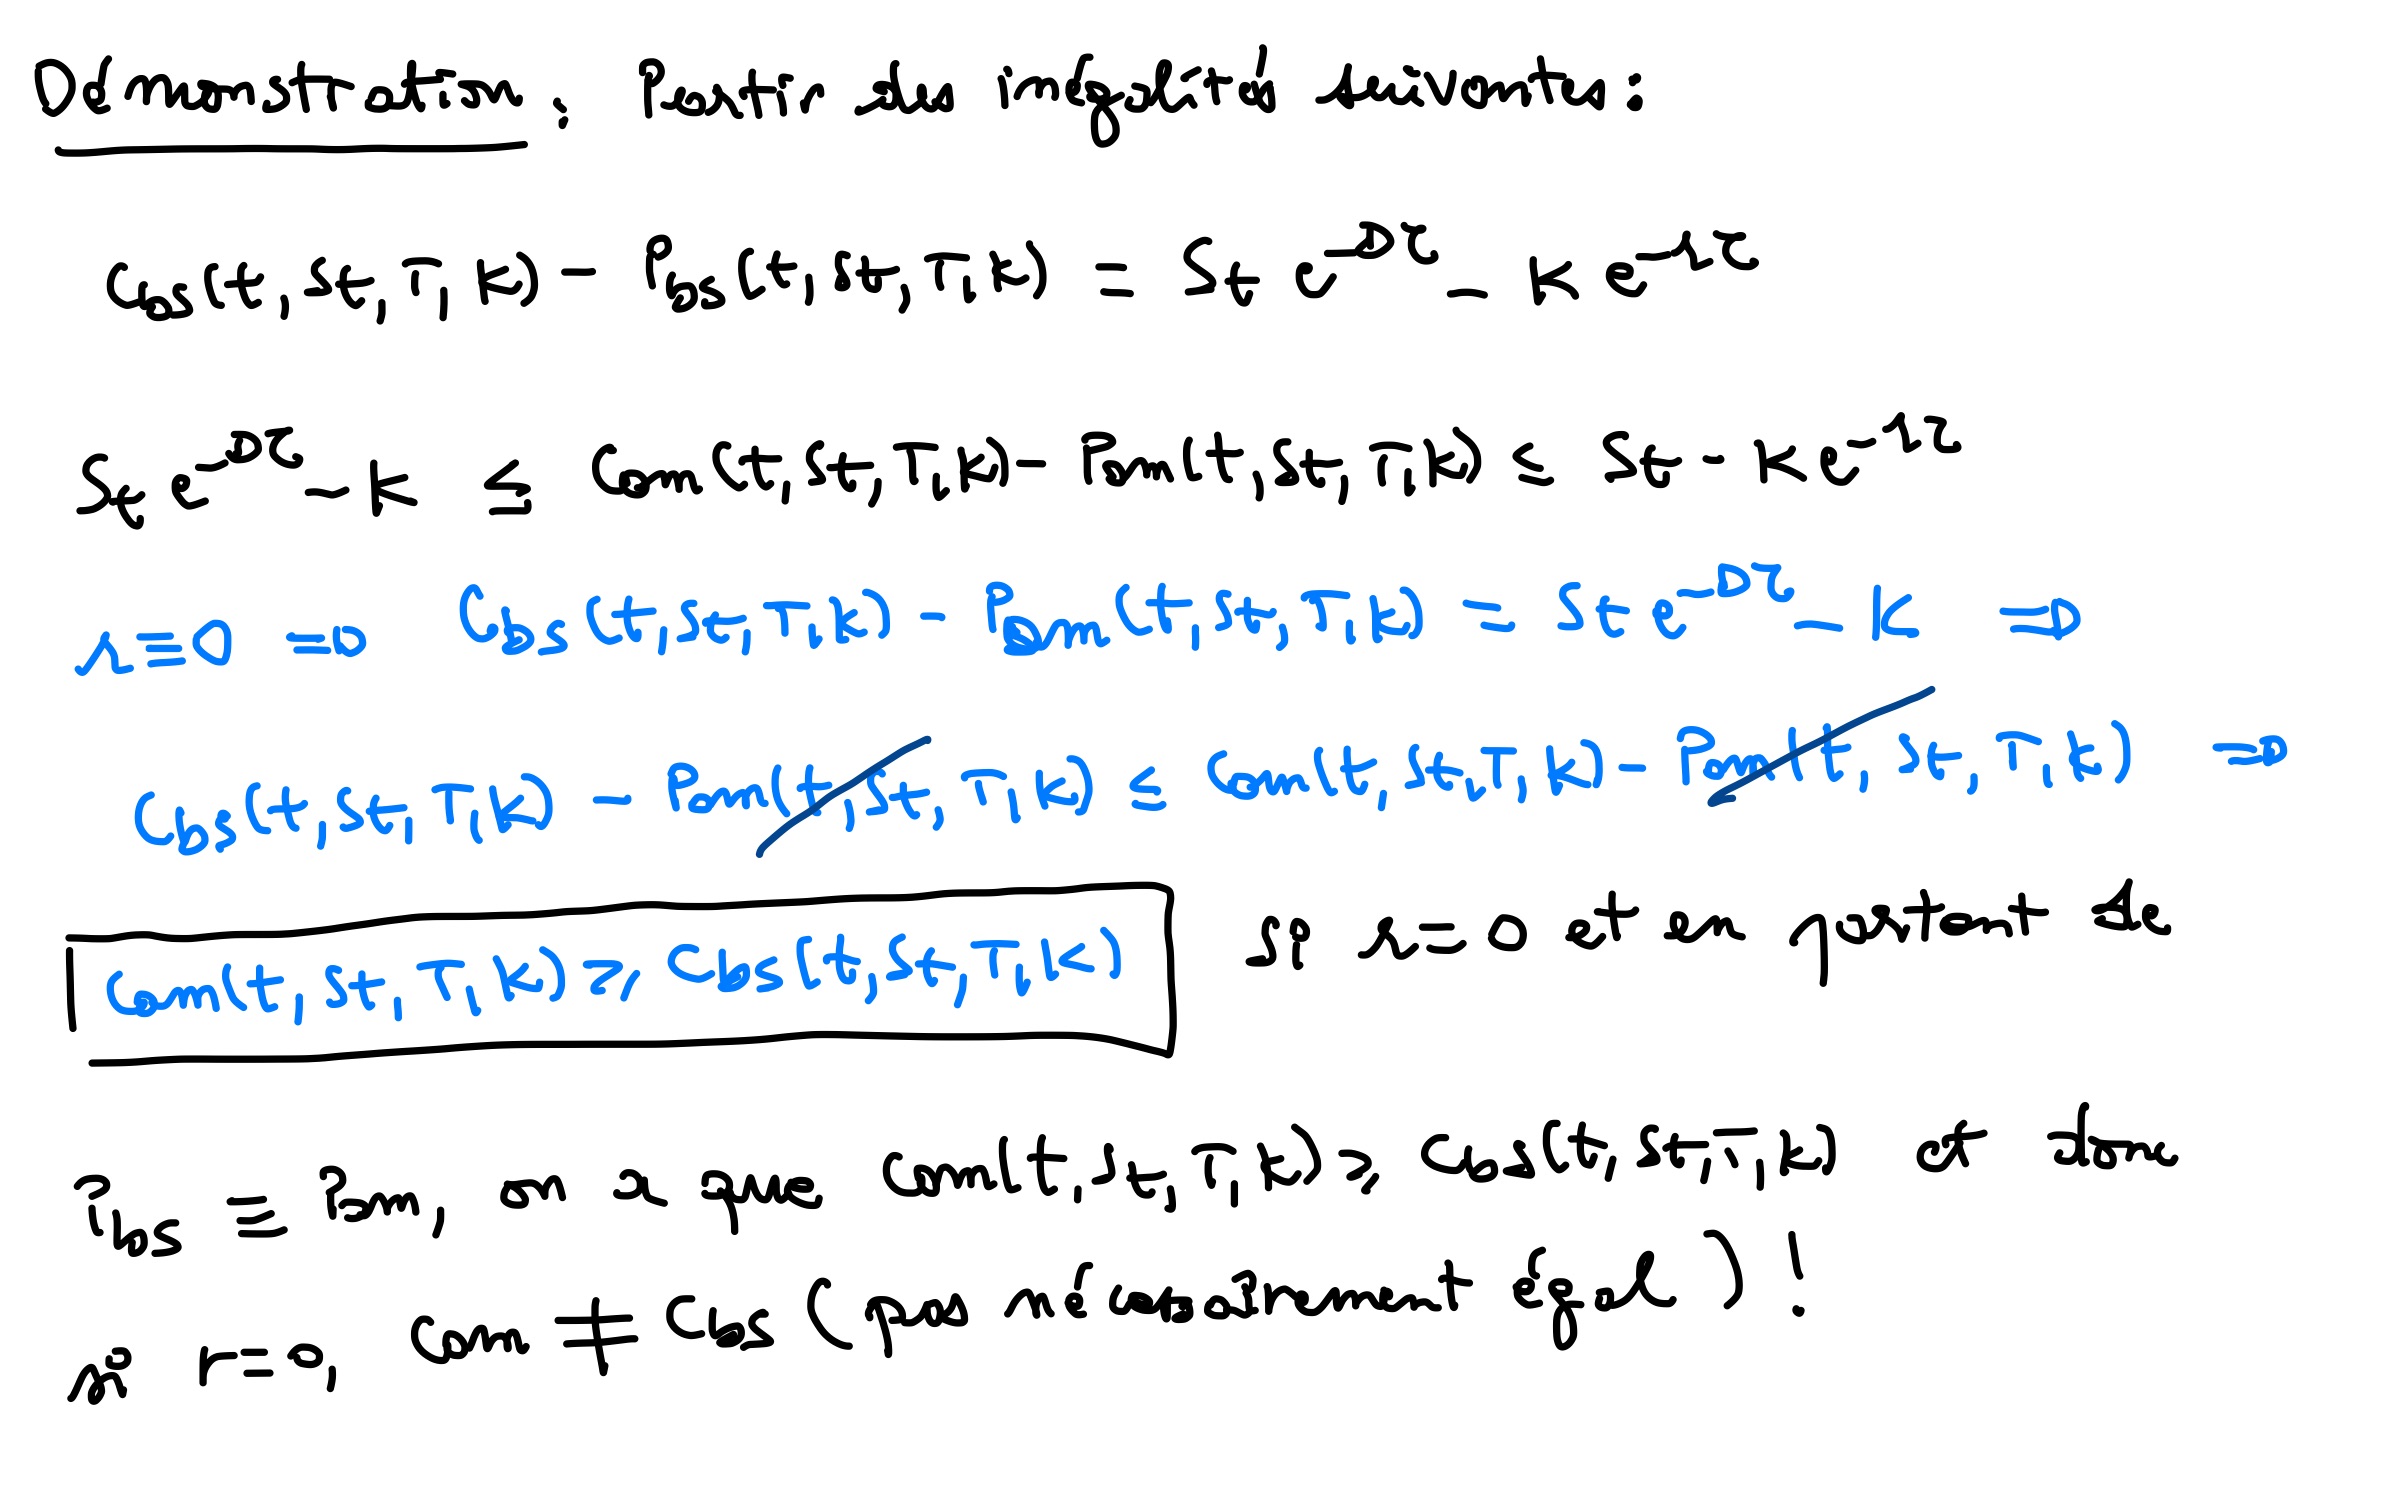 Démonstration : Partir des inégalités suivantes :
C_BS(t, St, T, K) - P_BS(t, St, T, K) = St e^{-Dτ} - K e^{-rτ}
St e^{-Dτ} - K ≤ Cam(t, St, T, K) - Pam(t, St, T, K) ≤ St - K e^{-rτ}
r ≡ 0 ⇒ Cbs(t, St, T, K) - Pam(t, St, T, K) = St e^{-Dτ} - K ⇒
Cbs(t, St, T, K) - Pam(t, St, T, K) ≤ Cam(t, St, T, K) - Pam(t, St, T, K) ⇒
Cam(t, St, T, K) ≥ Cbs(t, St, T, K) Si r = 0 et en partant de
Pbs ≡ Pam, on a que Cam(t, St, T, K) ≥ Cbs(t, St, T, K) et donc
si r = 0, Cam ≠ Cbs (pas nécessairement égal) !